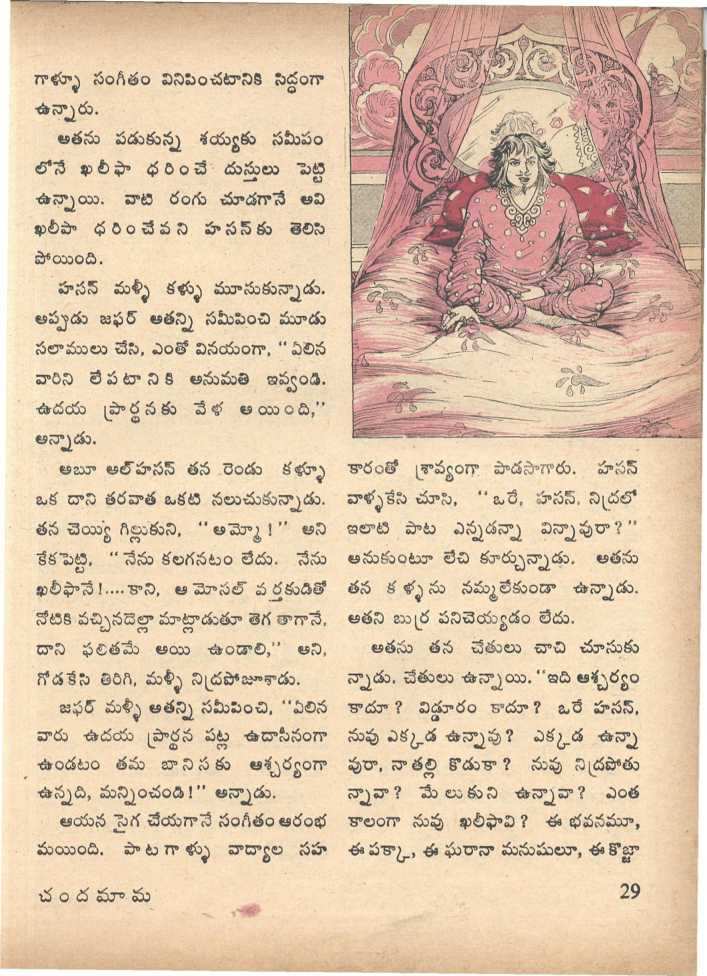 గాళ్ళూ సంగీతం వినిపించటానికి సిద్ధంగా
ఉన్నారు.
అతను పడుకున్న శయ్యకు సమీపం
లోనే ఖలీఫా ధరించే దుస్తులు పెట్టి
ఉన్నాయి. వాటి రంగు చూడగానే అవి
ఖలీపా ధరించేవని హసన్‌కు తెలిసి
పోయింది.
హసన్ మళ్ళీ కళ్ళు మూసుకున్నాడు.
అప్పుడు జఫర్ అతన్ని సమీపించి మూడు
సలాములు చేసి, ఎంతో వినయంగా, "ఏలిన
వారిని లేపటానికి అనుమతి ఇవ్వండి.
ఉదయ ప్రార్థనకు వేళ అయింది,"
అన్నాడు.
అబూ అల్‌హసన్ తన రెండు కళ్ళూ
ఒక దాని తరవాత ఒకటి నలుచుకున్నాడు.
తన చెయ్యి గిల్లుకుని, "అమ్మో!" అని
కేకపెట్టి, "నేను కలగనటం లేదు. నేను
ఖలీఫానే!....కాని, ఆ మోసల్ వర్తకుడితో
నోటికి వచ్చినదెల్లా మాట్లాడుతూ తెగ తాగానే,
దాని ఫలితమే అయి ఉండాలి," అని,
గోడకేసి తిరిగి, మళ్ళీ నిద్రపోజూశాడు.
జఫర్ మళ్ళీ అతన్ని సమీపించి, "ఏలిన
వారు ఉదయ ప్రార్థన పట్ల ఉదాసీనంగా
ఉండటం తమ బానిసకు ఆశ్చర్యంగా
ఉన్నది, మన్నించండి!" అన్నాడు.
ఆయన సైగ చేయగానే సంగీతం ఆరంభ
మయింది. పాటగాళ్ళు వాద్యాల సహ
కారంతో శ్రావ్యంగా పాడసాగారు. హసన్
వాళ్ళకేసి చూసి, "ఒరే, హసన్, నిద్రలో
ఇలాటి పాట ఎన్నడన్నా విన్నావురా?"
అనుకుంటూ లేచి కూర్చున్నాడు. అతను
తన కళ్ళను నమ్మలేకుండా ఉన్నాడు.
అతని బుర్ర పనిచెయ్యడం లేదు.
అతను తన చేతులు చాచి చూసుకు
న్నాడు. చేతులు ఉన్నాయి. "ఇది ఆశ్చర్యం
కాదూ? విడ్డూరం కాదూ? ఒరే హసన్,
నువు ఎక్కడ ఉన్నావు? ఎక్కడ ఉన్నా
వురా, నా తల్లి కొడుకా? నువు నిద్రపోతు
న్నావా? మేలుకుని ఉన్నావా? ఎంత
కాలంగా నువు ఖలీఫావి? ఈ భవనమూ,
ఈ పక్కా, ఈ ఘరానా మనుషులూ, ఈ కొజ్జా
చందమామ
29